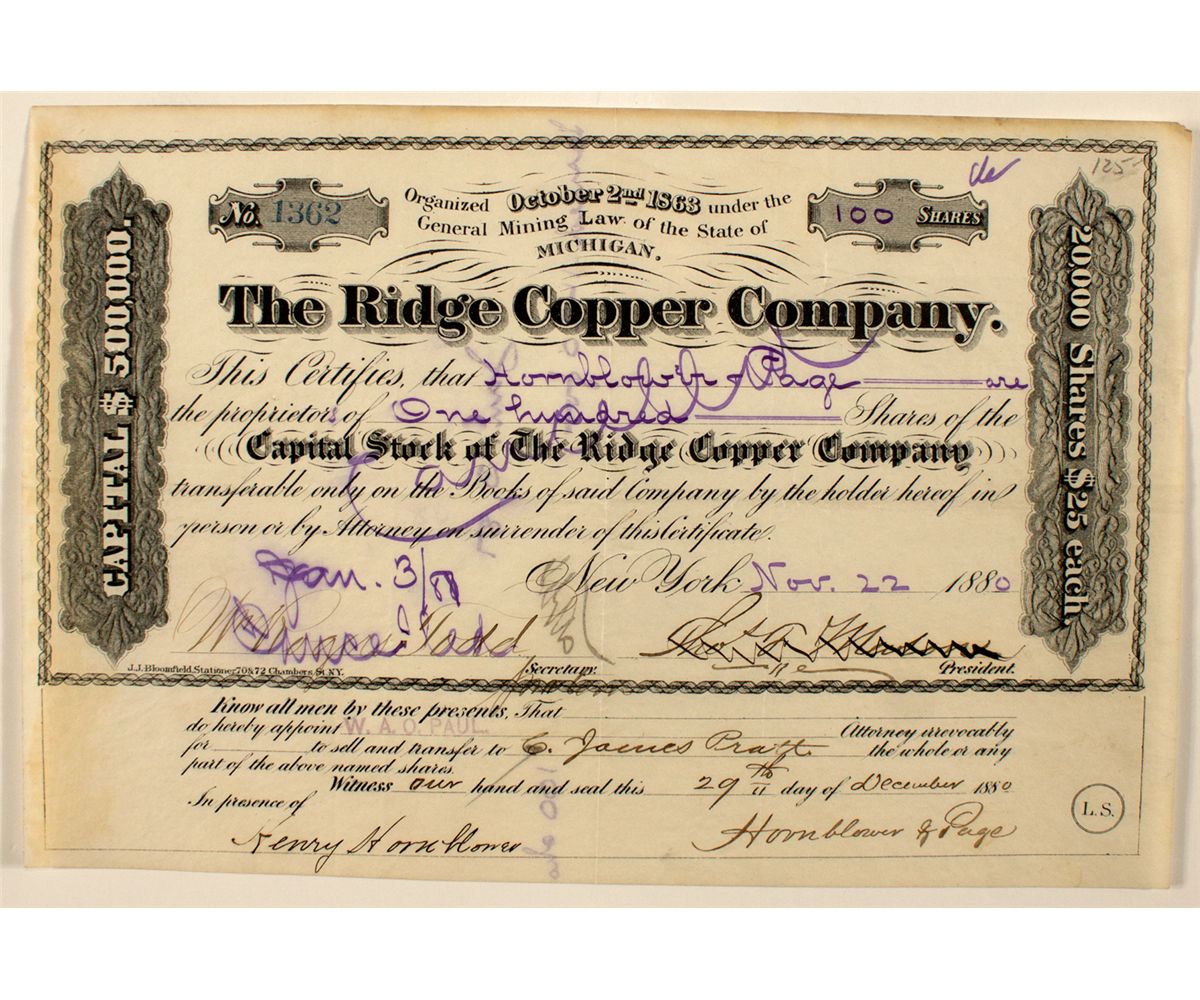 125
No. 1362
Organized October 2nd 1863 under the
General Mining Law of the State of
MICHIGAN.
100 SHARES
CAPITAL $ 500,000.
20,000 Shares $25 each.
The Ridge Copper Company.
This Certifies, that Hornblower & Page are
the proprietors of One hundred Shares of the
Capital Stock of The Ridge Copper Company
transferable only on the Books of said Company by the holder hereof in
person or by Attorney on surrender of this Certificate.
Jan. 3/
New York Nov. 22 1880
Todd
Secretary.
President.
J.J. Bloomfield, Stationer, 70 & 72 Chambers St. N.Y.
Know all men by these presents, That
do hereby appoint W. A. O. PAUL. Attorney irrevocably
for to sell and transfer to C. James Pratt the whole or any
part of the above named shares.
Witness our hand and seal this 29th day of December 1880
In presence of
Henry Hornblower
Hornblower & Page
L.S.